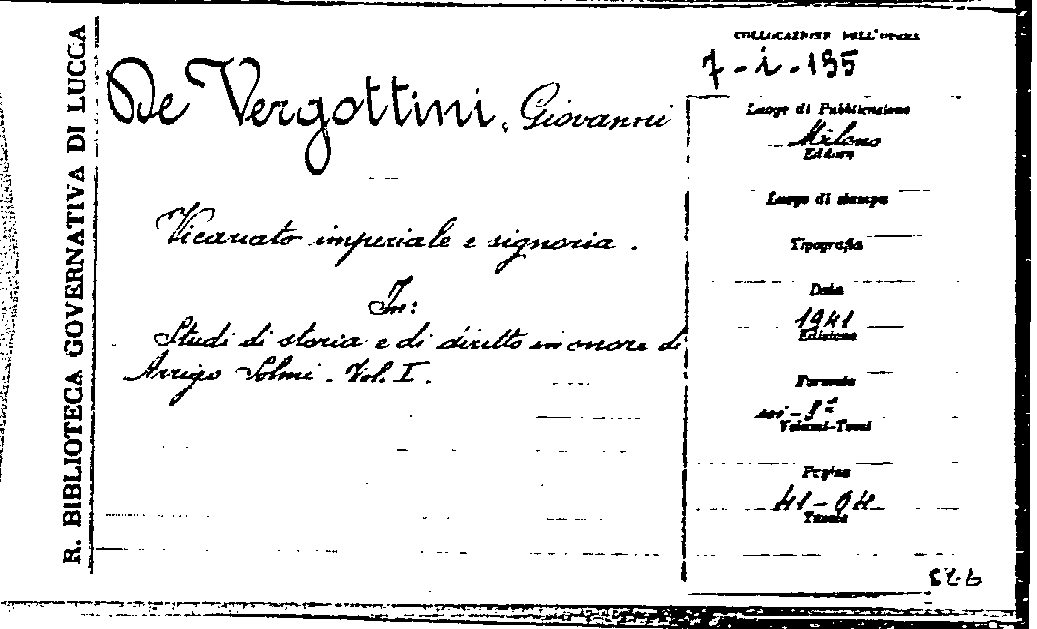 R. BIBLIOTECA GOVERNATIVA DI LUCCA
De Vergottini, Giovanni
Vicariato imperiale e signoria.
In:
Studi di storia e di diritto in onore di
Arrigo Solmi. Vol. I.
COLLOCAZIONE DELL'OPERA
7-i-195
Luogo di Pubblicazione
Milano
Editore
Luogo di stampa
Tipografia
Data
1941
Edizione
Formato
in-8º
Volumi-Tomi
Pagine
41-64
Tavole